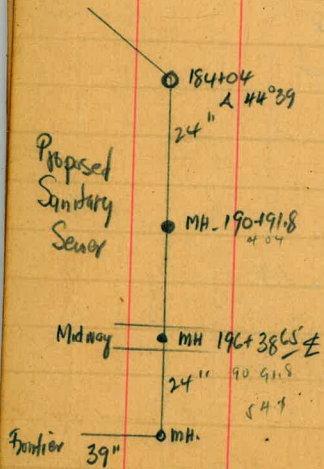 184+04
Δ 44°39
24"
Proposed
Sanitary
Sewer
MH - 190+91.8
4 04
Midway
MH 196+38.65 ℄
24" 90 91.8
54 7
Frontier
39"
MH.